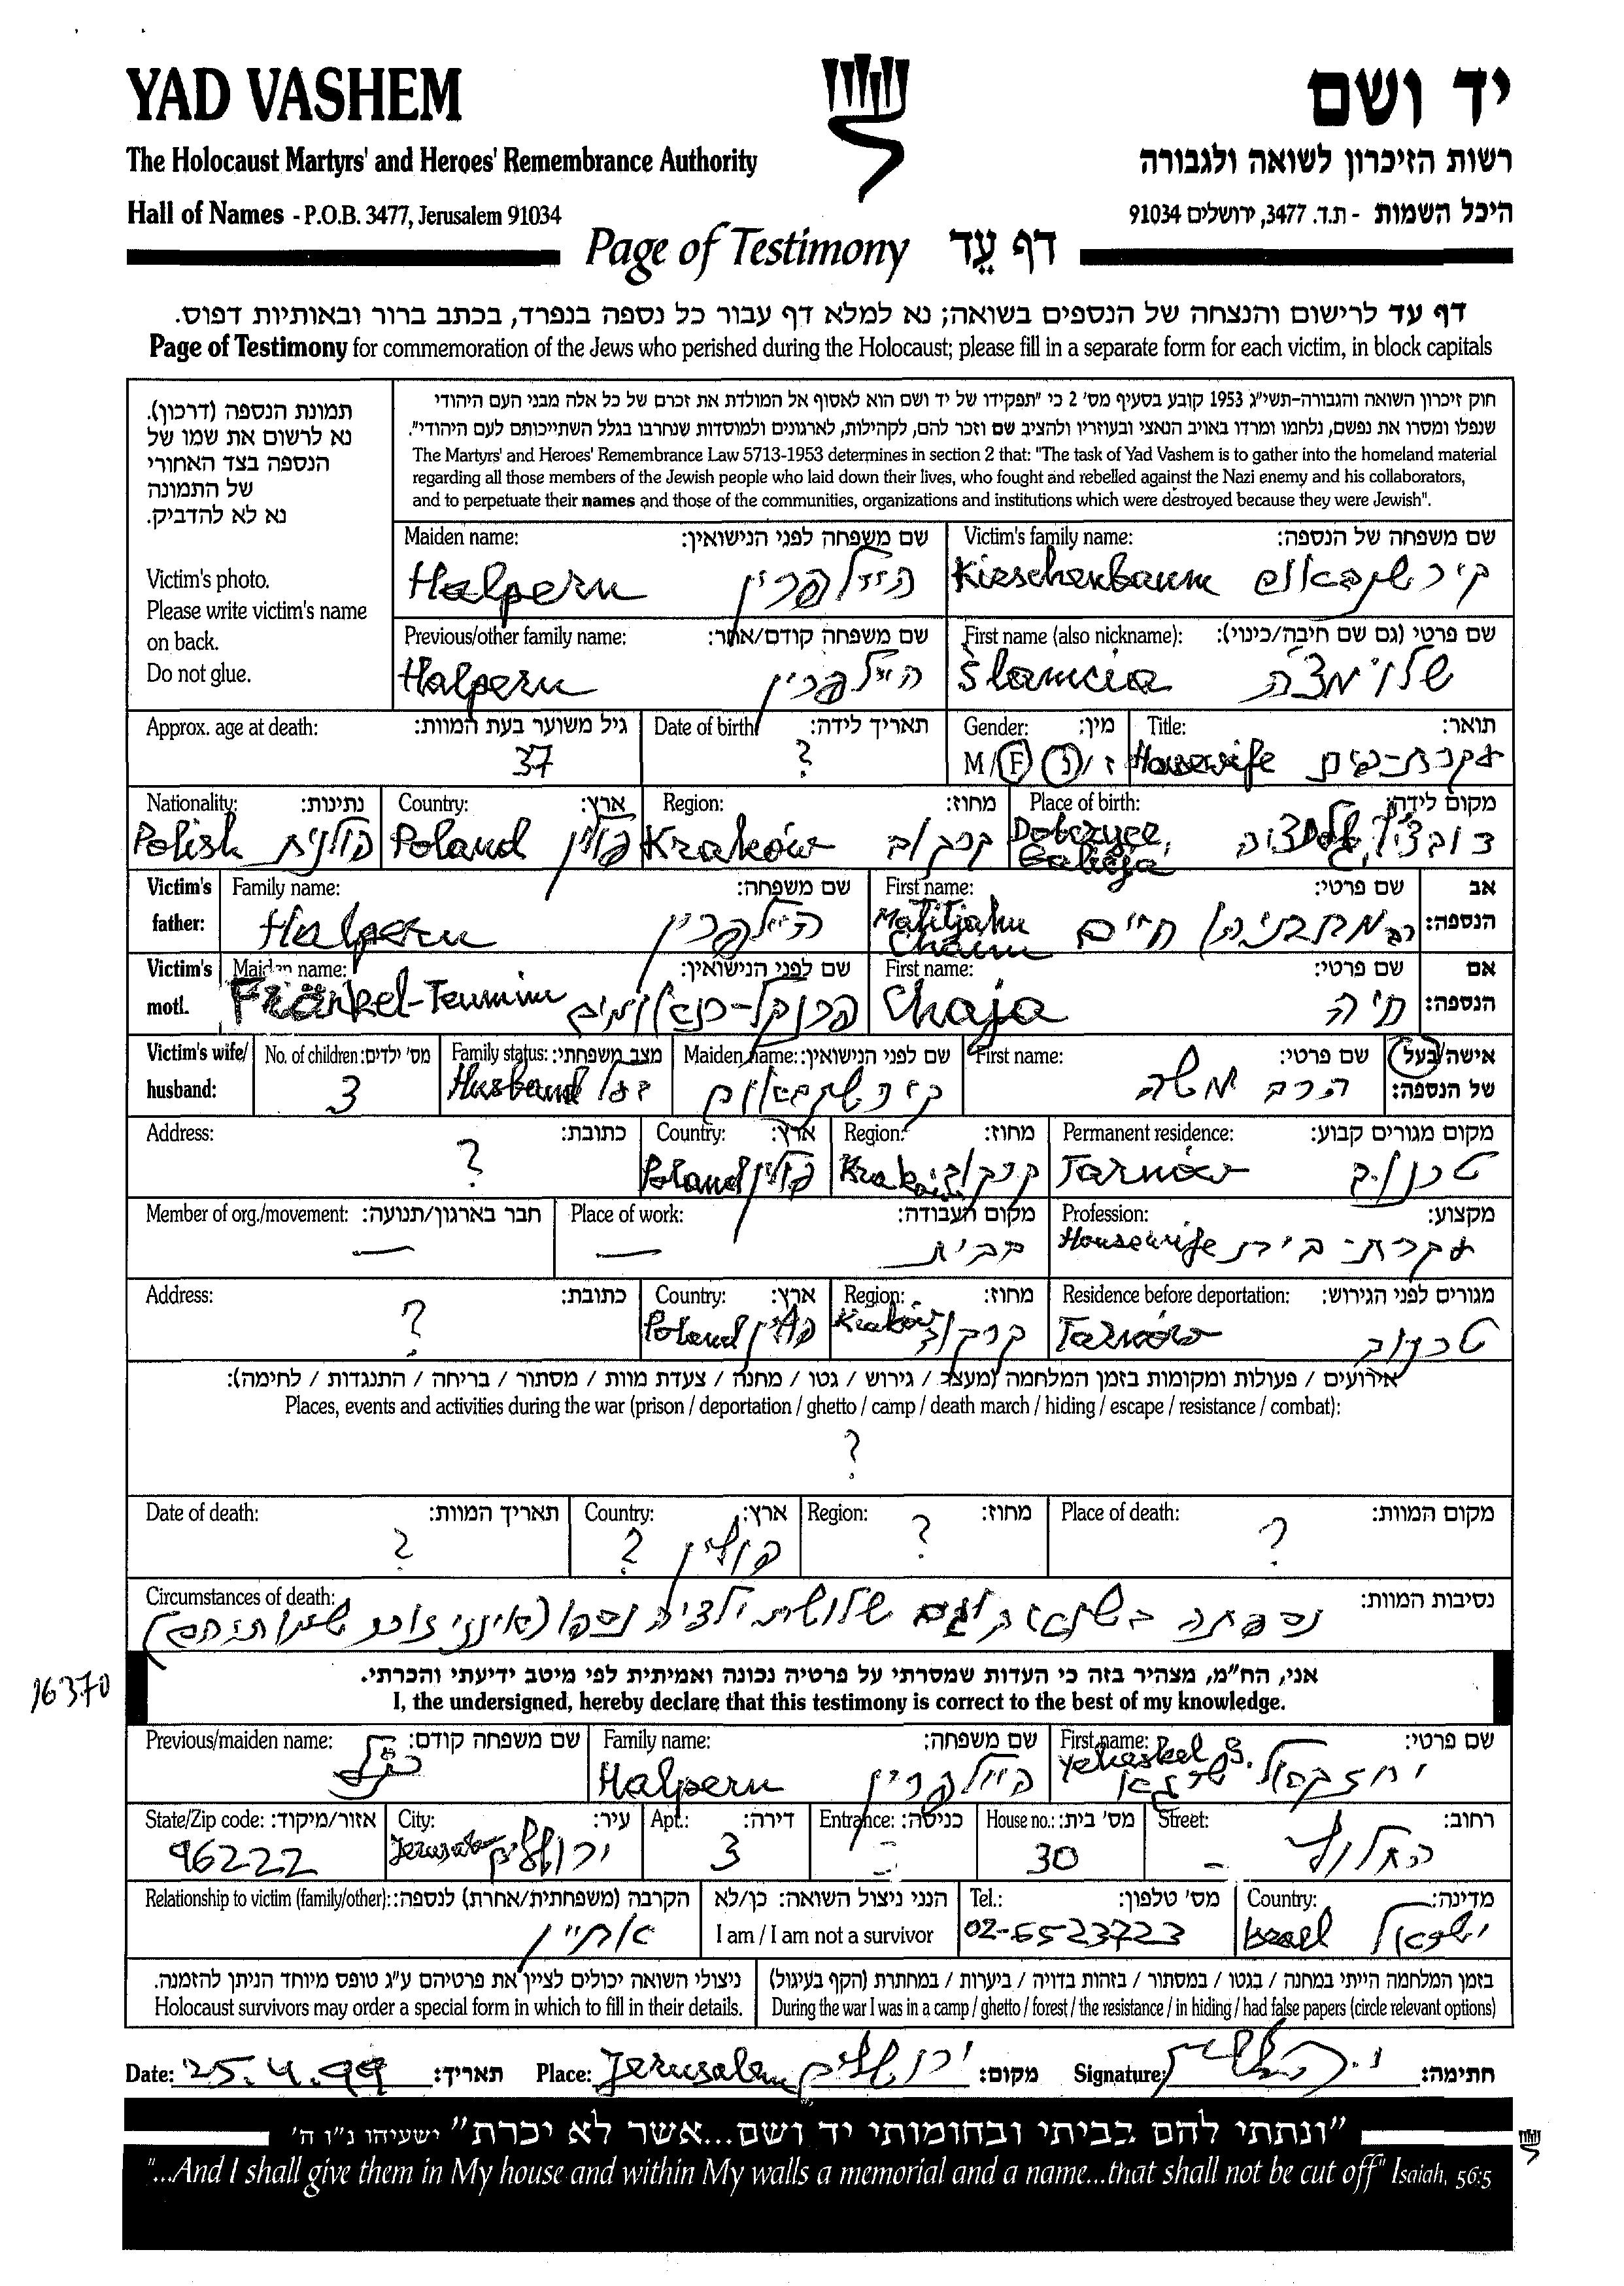 YAD VASHEM
יד ושם
The Holocaust Martyrs' and Heroes' Remembrance Authority
רשות הזיכרון לשואה ולגבורה
Hall of Names - P.O.B. 3477, Jerusalem 91034
היכל השמות - ת.ד. 3477, ירושלים 91034
Page of Testimony דף עֵד
דף עד לרישום והנצחה של הנספים בשואה; נא למלא דף עבור כל נספה בנפרד, בכתב ברור ובאותיות דפוס.
Page of Testimony for commemoration of the Jews who perished during the Holocaust; please fill in a separate form for each victim, in block capitals
תמונת הנספה (דרכון).
נא לרשום את שמו של
הנספה בצד האחורי
של התמונה
נא לא להדביק.
Victim's photo.
Please write victim's name
on back.
Do not glue.
חוק זיכרון השואה והגבורה-תשי"ג 1953 קובע בסעיף מס' 2 כי "תפקידו של יד ושם הוא לאסוף אל המולדת את זכרם של כל אלה מבני העם היהודי
שנפלו ומסרו את נפשם, נלחמו ומרדו באויב הנאצי ובעוזריו ולהציב שם וזכר להם, לקהילות, לארגונים ולמוסדות שנחרבו בגלל השתייכותם לעם היהודי".
The Martyrs' and Heroes' Remembrance Law 5713-1953 determines in section 2 that: "The task of Yad Vashem is to gather into the homeland material
regarding all those members of the Jewish people who laid down their lives, who fought and rebelled against the Nazi enemy and his collaborators,
and to perpetuate their names and those of the communities, organizations and institutions which were destroyed because they were Jewish".
Maiden name: שם משפחה לפני הנישואין:
Halpern היילפרין
Victim's family name: שם משפחה של הנספה:
Kirschenbaum קירשנבאום
Previous/other family name: שם משפחה קודם/אחר:
Halpern היילפרין
First name (also nickname): שם פרטי (גם שם חיבה/כינוי):
Slamcia שלומצ'ה
Approx. age at death: גיל משוער בעת המוות:
37
Date of birth: תאריך לידה:
?
Gender: מין:
M / F ז / נ
Title: תואר:
Housewife עקרת-בית
Nationality: נתינות:
Polish פולנית
Country: ארץ:
Poland פולין
Region: מחוז:
Kraków קרקוב
Place of birth: מקום לידה:
Dobczyce,
Galicja
Victim's father:
Family name: שם משפחה:
Halpern היילפרין
First name: שם פרטי:
Matitjahu
Chaim
רב מתתיהו חיים
אב הנספה:
Victim's motl.
Maiden name: שם לפני הנישואין:
Fränkel-Teumim פרנקל-תאומים
First name: שם פרטי:
Chaja חיה
אם הנספה:
Victim's wife/ husband:
No. of children: מס' ילדים:
3
Family status: מצב משפחתי:
Husband בעל
Maiden name: שם לפני הנישואין:
קירשנבאום
First name: שם פרטי:
הרב משה
אישה/בעל של הנספה:
Address: כתובת:
?
Country: ארץ:
Poland פולין
Region: מחוז:
Kraków קרקוב
Permanent residence: מקום מגורים קבוע:
Tarnów טרנוב
Member of org./movement: חבר בארגון/תנועה:
—
Place of work: מקום העבודה:
— בבית
Profession: מקצוע:
Housewife עקרת-בית
Address: כתובת:
?
Country: ארץ:
Poland פולין
Region: מחוז:
Kraków קרקוב
Residence before deportation: מגורים לפני הגירוש:
Tarnów טרנוב
אירועים / פעולות ומקומות בזמן המלחמה (מעצר / גירוש / גטו / מחנה / צעדת מוות / מסתור / בריחה / התנגדות / לחימה):
Places, events and activities during the war (prison / deportation / ghetto / camp / death march / hiding / escape / resistance / combat):
?
Date of death: תאריך המוות:
?
Country: ארץ:
? פולין
Region: מחוז:
?
Place of death: מקום המוות:
?
Circumstances of death: נסיבות המוות:
נספתה בשואה וגם שלושת ילדיה נספו (אינני זוכר שמותיהם)
16370
אני, הח"מ, מצהיר בזה כי העדות שמסרתי על פרטיה נכונה ואמיתית לפי מיטב ידיעתי והכרתי.
I, the undersigned, hereby declare that this testimony is correct to the best of my knowledge.
Previous/maiden name: שם משפחה קודם:
Family name: שם משפחה:
Halpern היילפרין
First name: שם פרטי:
Yeheskel S. יחזקאל
State/Zip code: אזור/מיקוד:
96222
City: עיר:
Jerusalem ירושלים
Apt.: דירה:
3
Entrance: כניסה:
-
House no.: מס' בית:
30
Street: רחוב:
החלוץ
Relationship to victim (family/other): הקרבה (משפחתית/אחרת) לנספה:
אחיין
הנני ניצול השואה: כן/לא
I am / I am not a survivor
Tel.: מס' טלפון:
02-6523723
Country: מדינה:
Israel ישראל
ניצולי השואה יכולים לציין את פרטיהם ע"ג טופס מיוחד הניתן להזמנה.
Holocaust survivors may order a special form in which to fill in their details.
בזמן המלחמה הייתי במחנה / בגטו / במסתור / בזהות בדויה / ביערות / במחתרת (הקף בעיגול)
During the war I was in a camp / ghetto / forest / the resistance / in hiding / had false papers (circle relevant options)
Date: 25.4.99 תאריך: Place: Jerusalem ירושלים מקום: Signature: חתימה:
"ונתתי להם בביתי ובחומותי יד ושם...אשר לא יכרת" ישעיהו נ"ו ה'
"...And I shall give them in My house and within My walls a memorial and a name...that shall not be cut off" Isaiah, 56:5